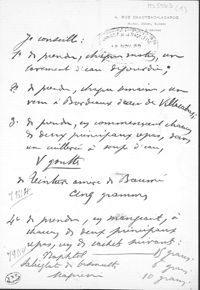 4, RUE CHAUVEAU-LAGARDE
Je conseille :
1° de prendre, chaque matin, un
lavement d'eau
2° de prendre, chaque semaine, un
verre à Bordeaux d'eau de Villacabras ;
3° de prendre, en commençant chacun
de deux principaux repas, dans
une cuillerée à soupe d'eau,
V gouttes
de Teinture amère de Baumé
cinq grammes
4° de prendre, en mangeant, à
chacun de deux principaux
repas, un de cachets suivants :
Naphtol 15 gram.
Salicylate de bismuth
Magnésie 10 gram.